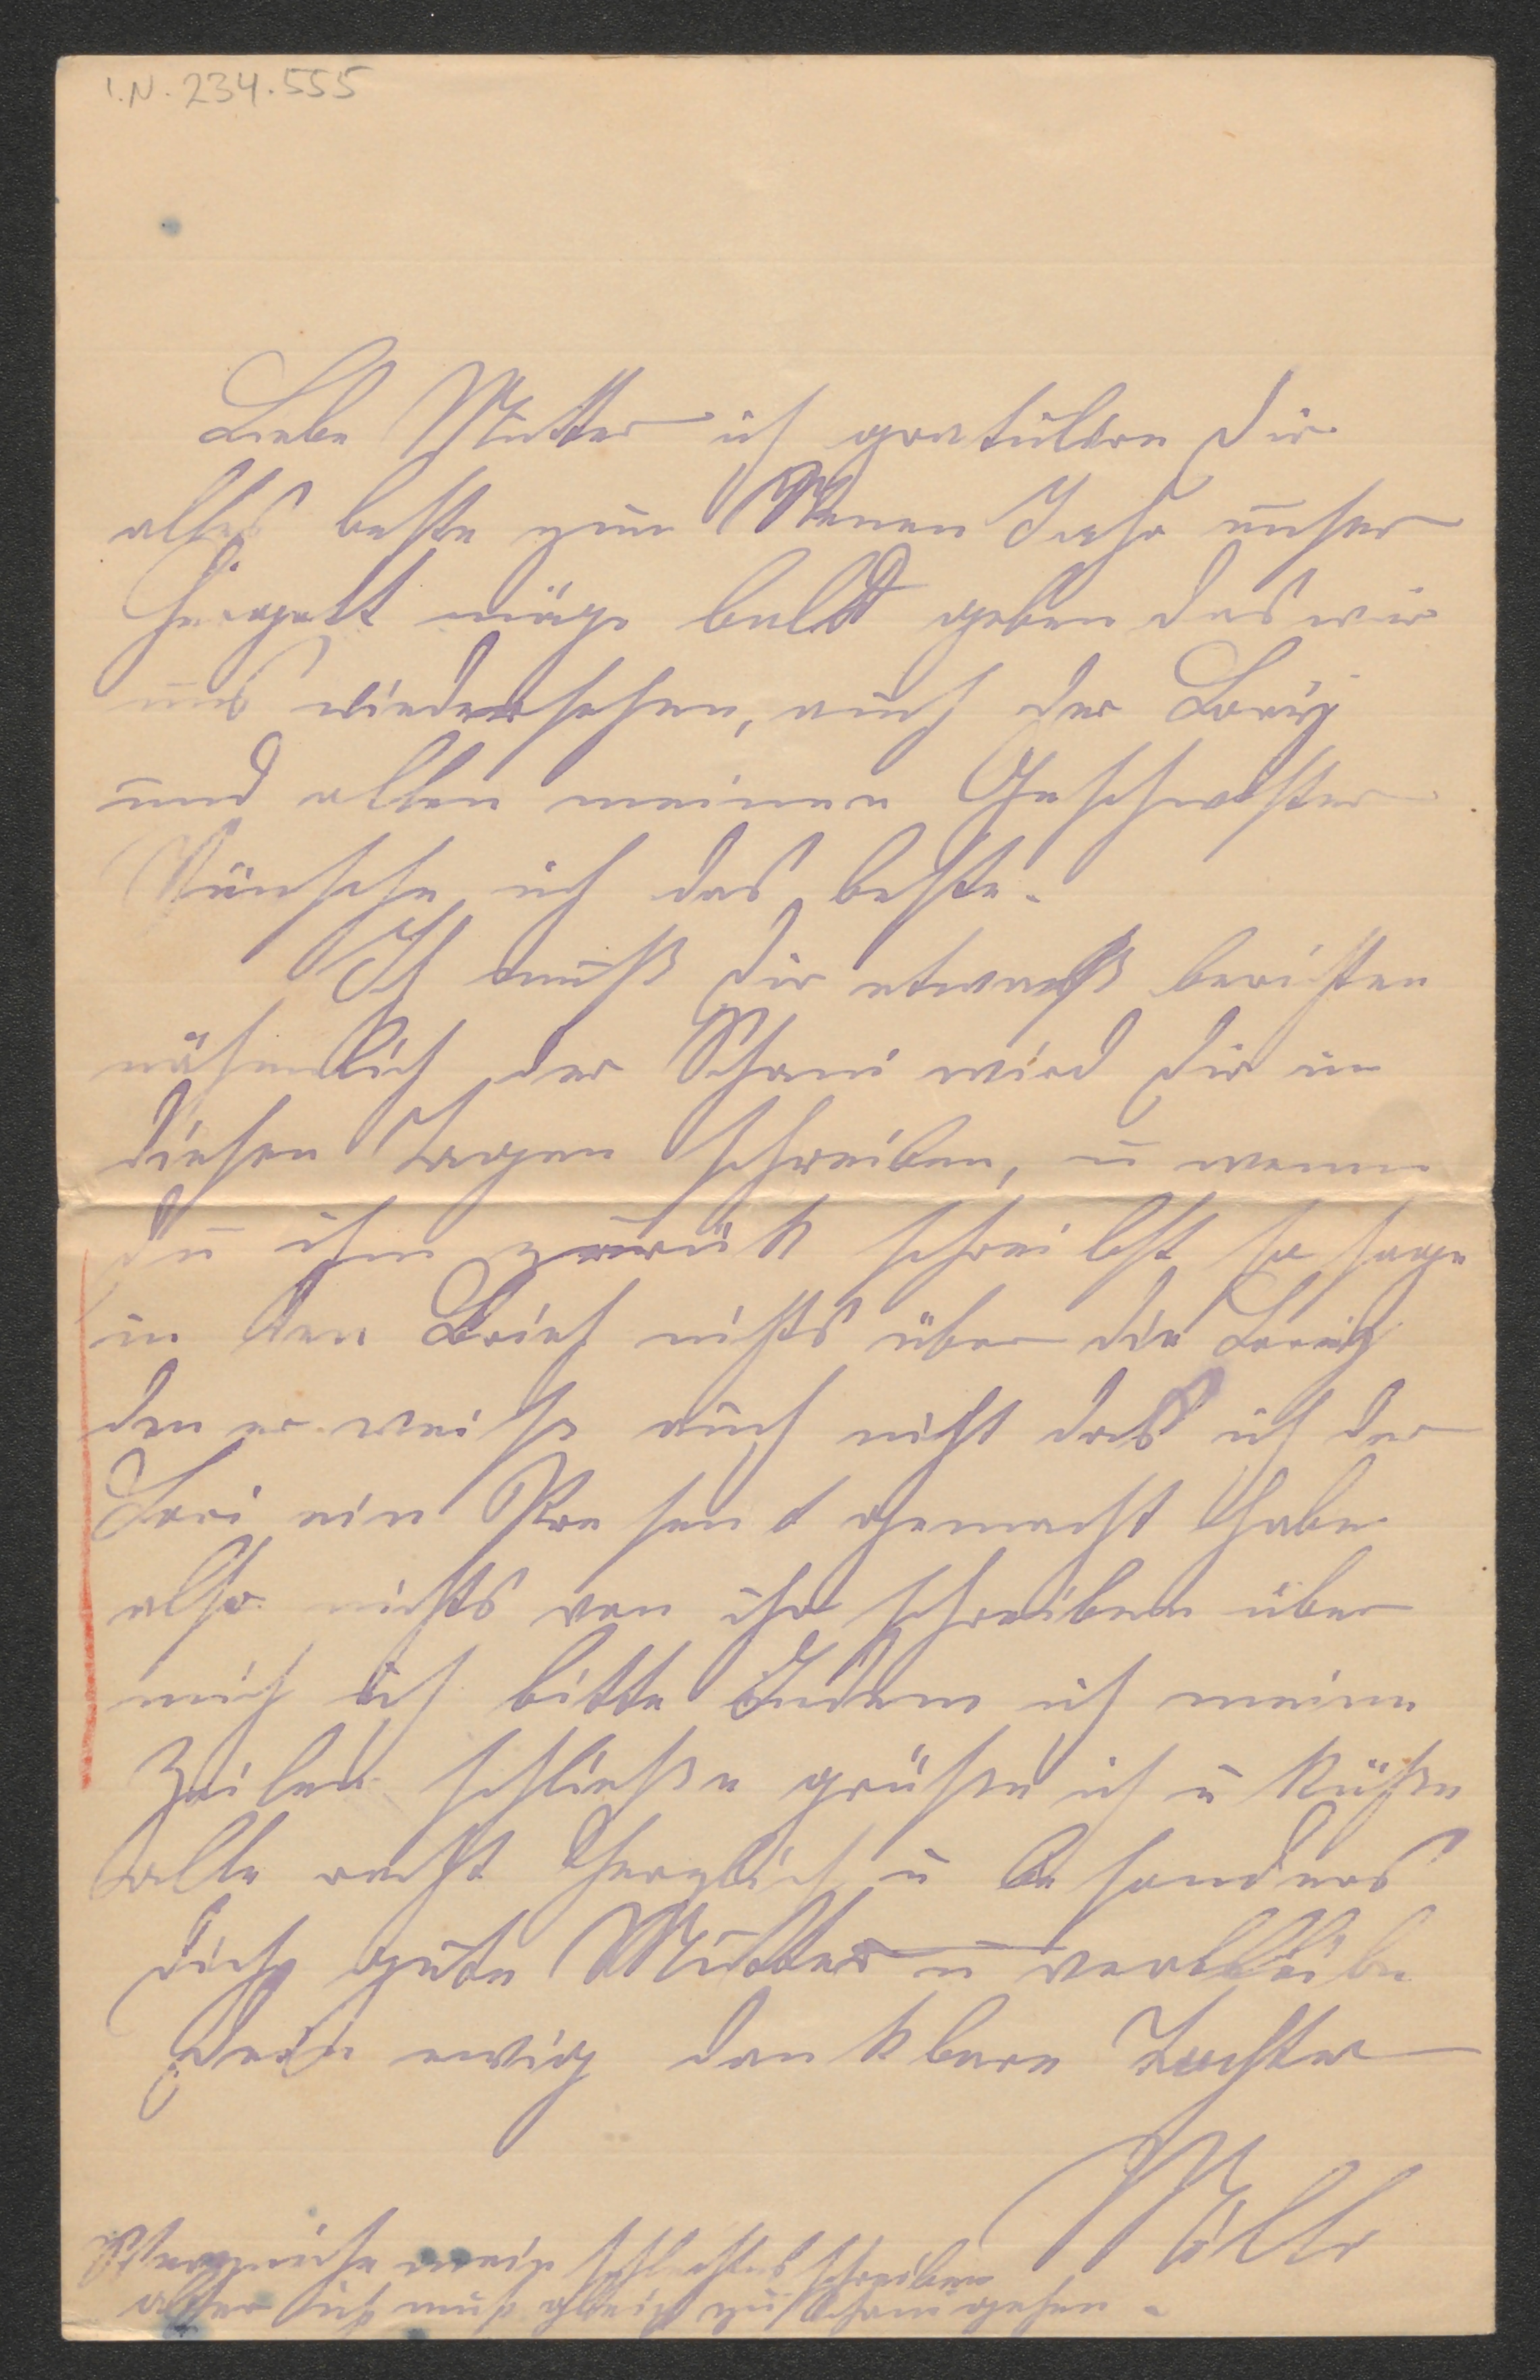 I.N. 234.555
Liebe Mutter ich gratuliere dir
alles beste zum Neuen Jahr unser
Hergott möge baldt geben das wir
uns wiedersehen, auch der
und allen meinen Geschwister
Wünsche ich das beste.
Ich muß dir etwaß berichten
nähmlich der Schani wird dir in
diesen Tagen schreiben, u wenn
du ihm zurük schreibst so sage
in den Brief nichts über die
den er weiß auch nicht das ich der
Lori ein Presend gemacht habe
also nichts von ihr schreiben über
mich ich bitte Indem ich meine
Zeilen schließe grüße ich u küße
alle recht Herzlich u besonders
dich gute Mutter u verbleibe
Dein ewig dankbare Tochter
Verzeihe mein schlechtes schreiben
aber ich muß gleich zu Schani gehen.